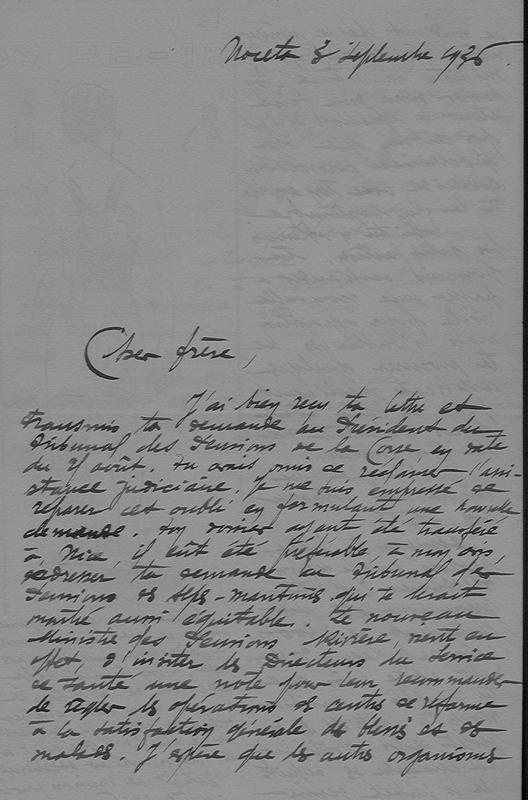 Noceta 3 Septembre 1936
Cher frère,
J'ai bien reçu ta lettre et
transmis ta demande au Président du
Tribunal des Pensions de la Corse, en date
du 21 août. Tu avais omis de réclamer l'assi-
stance judiciaire. Je me suis empressé de
réparer cet oubli en formulant une nouvelle
demande. Ton dossier ayant été transféré
à Nice, il eût été préférable, à mon avis,
d'adresser ta demande au Tribunal des
Pensions des Alpes-Maritimes qui te serait
aussi équitable. Le nouveau
Ministre des Pensions Rivière, vient en
effet, d'inviter les Directeurs du Service
de Santé une note pour leur recommander
de régler les opérations des centres de réforme
à la satisfaction générale des blessés et des
malades. J'espère que les autres organismes